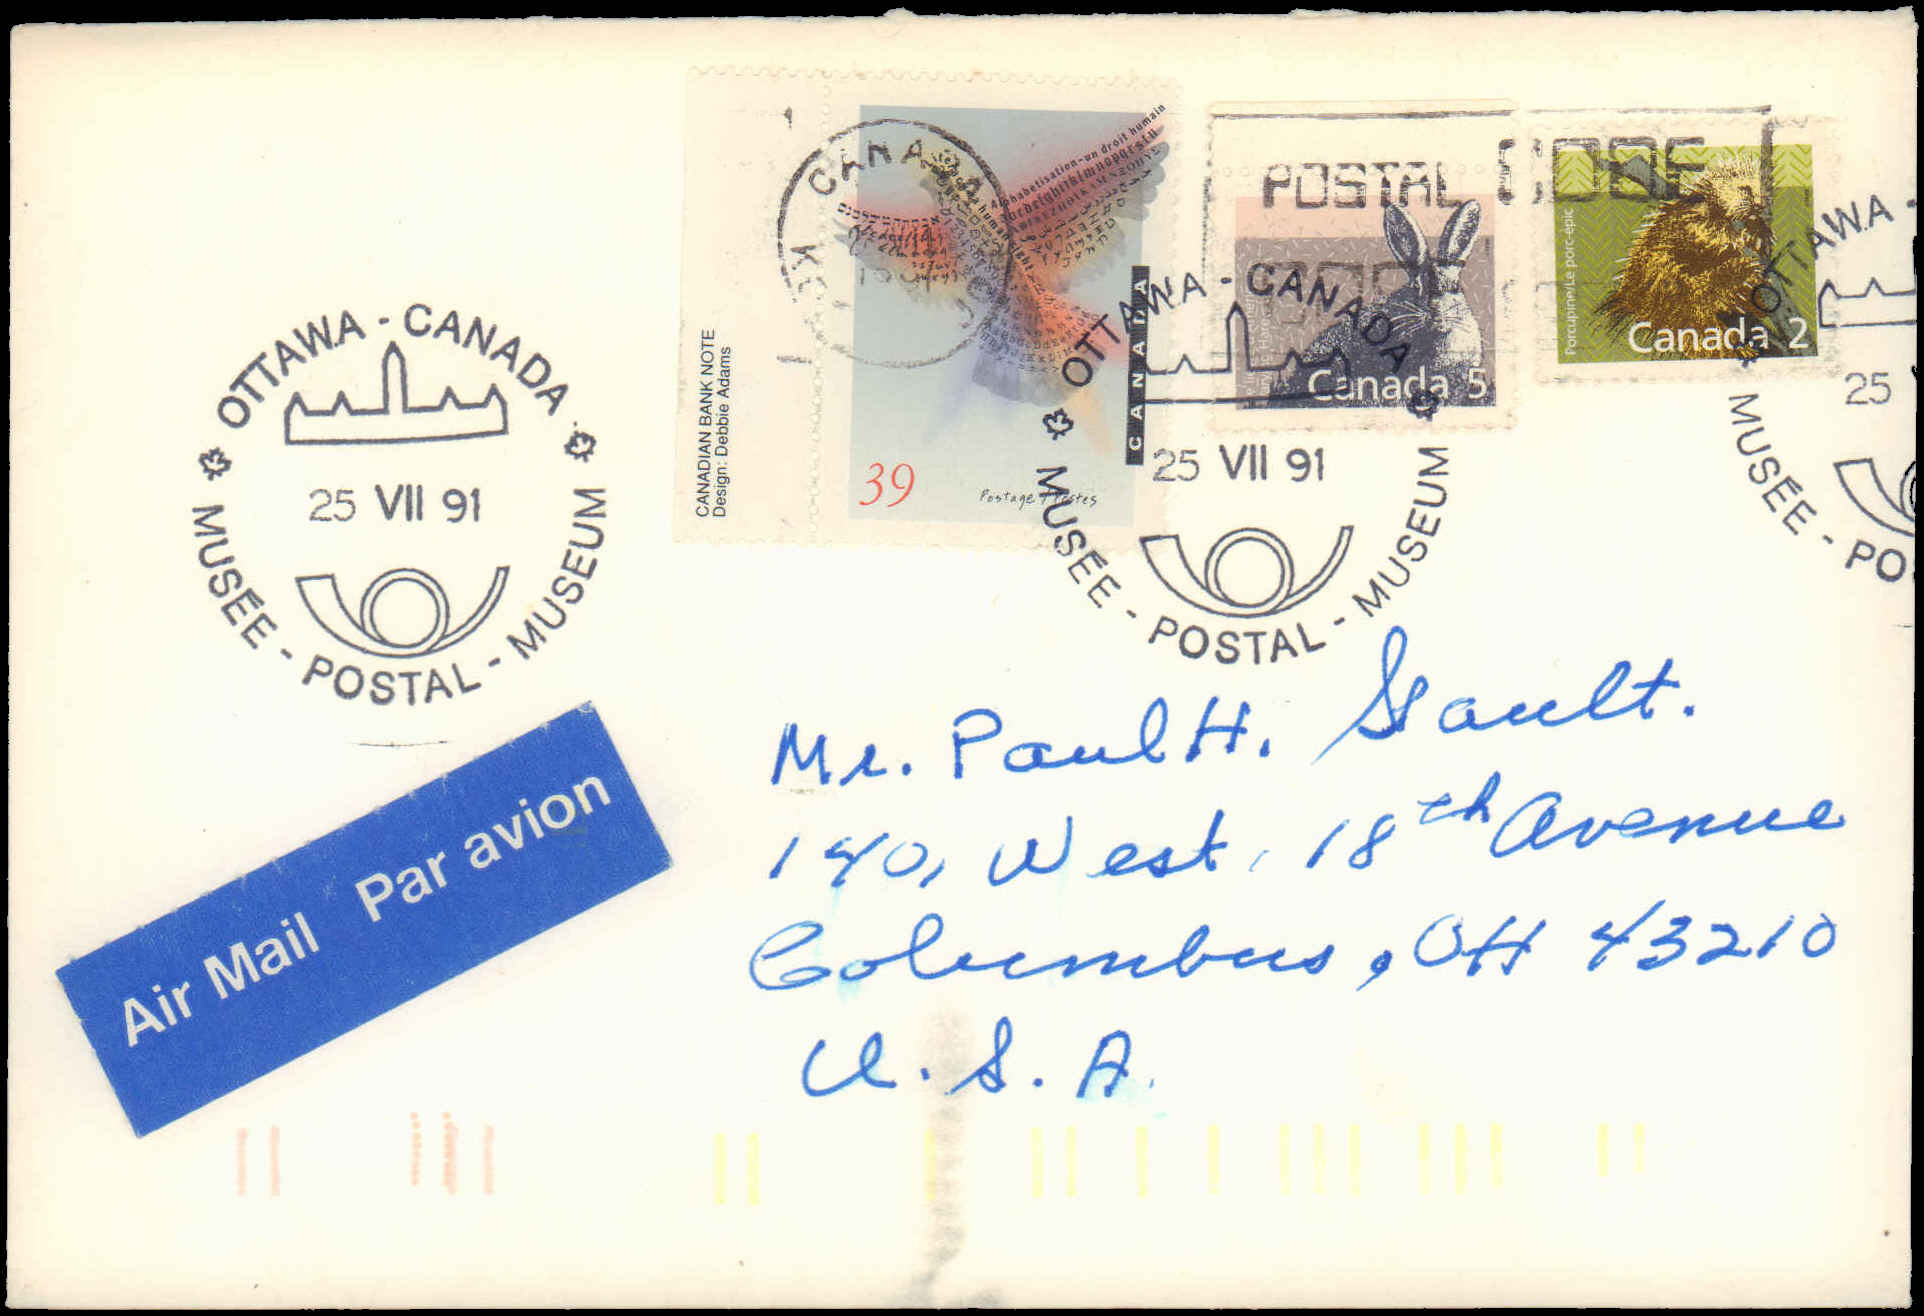 CANADIAN BANK NOTE
Design: Debbie Adams
Alphabetisation-un droit humain
39
Postage / Postes
CANADA
Canada 5
Porcupine/Le porc-épic
Canada 2
CANADA
POSTAL CODE
OTTAWA - CANADA
25 VII 91
MUSÉE - POSTAL - MUSEUM
OTTAWA - CANADA
25 VII 91
MUSÉE - POSTAL - MUSEUM
OTTAWA -
25
MUSÉE - PO
Air Mail Par avion
Mr. Paul H. Gault.
140, West. 18th Avenue
Columbus, OH 43210
U.S.A.